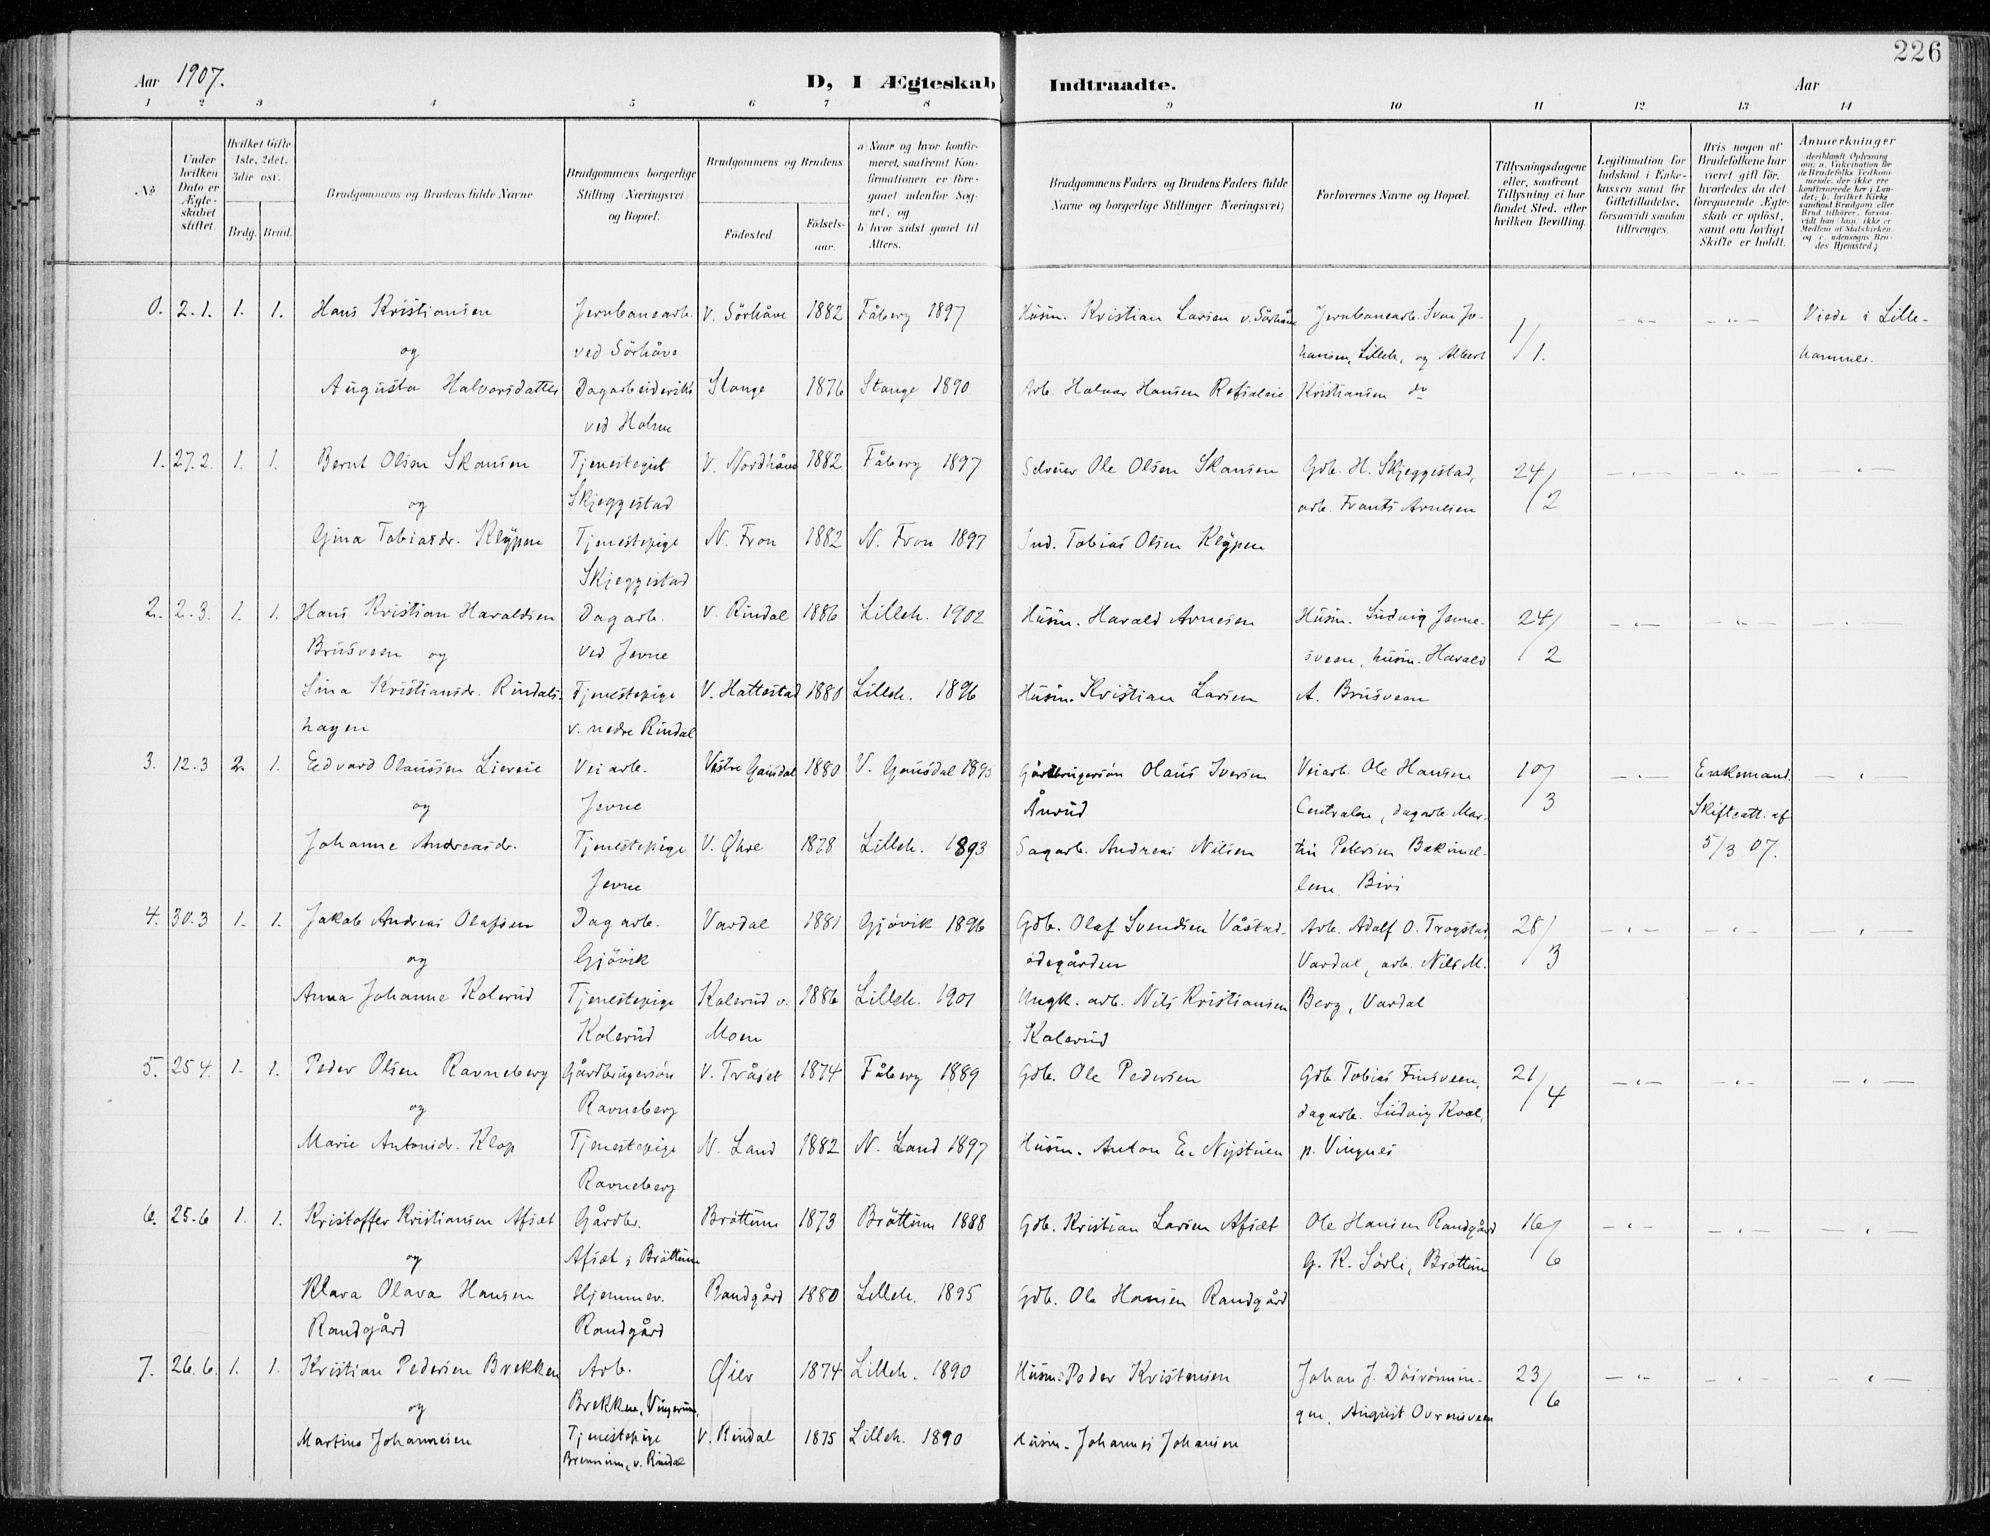 226
Aar 1907.
D, I Ægteskab Indtraadte.
Aar
1 2 3 4 5 6 7 8 9 10 11 12 13 14
No
Under hvilken Dato er Ægteskabet stiftet.
Hvilket Gifte 1ste, 2det, 3die osv.
Brdg. Brud.
Brudgommens og Brudens fulde Navne
Brudgommens borgerlige Stilling (Næringsvei) og Bopæl.
Brudgommens og Brudens
Fødested
Fødsels-aar.
a) Naar og hvor konfirmeret, saafremt Konfirmationen er foregaaet udenfor Sognet, og
b) hvor sidst gaaet til Alters.
Brudgommens Faders og Brudens Faders fulde Navne og borgerlige Stillinger (Næringsvei)
Forlovernes Navne og Bopæl.
Tillysningsdagene eller, saafremt Tillysning ei har fundet Sted, efter hvilken Bevilling.
Legitimation for Indskud i Enkekassen samt for Giftetilladelse, forsaavidt saadan tiltrænges.
Hvis nogen af Brudefolkene har været gift før, hvorledes da det foregaaende Ægteskab er opløst, samt om lovligt Skifte er holdt.
Anmerkninger
0. 2.1. 1. 1. Hans Kristiansen Jernbanearb. V. Sörhåve 1882 Fåberg 1897 Husm. Kristian Larsen v. Sörhåve Jernbanearb. Sven Jo- 1/1. -"- -"- Viede i Lille-
og ved Sörhåve hansen, Lilleh, og Albert hammer.
Augusta Halvorsdatter Dagarbeiderske Stange 1876 Stange 1890 Arb. Halvor Hansen Kristiansen do
ved Holme
1. 27.2. 1. 1. Bernt Olsen Skansen Tjenestegut V. Nordhåve 1882 Fåberg 1897 Selveier Ole Olsen Skansen Gdb. H. Skjeggestad, 24/2 -"- -"- -"-
og Skjeggestad arb. Frants Arnesen
Gina Tobiasdr. Kleypen Tjenestepige N. Fron 1882 N. Fron 1897 Ind. Tobias Olsen Kleypen
Skjeggestad
2. 2.3. 1. 1. Hans Kristian Haraldsen Dagarb. V. Rindal 1886 Lilleh. 1902 Husm. Harald Arnesen Husm. Ludvig Jevne- 24/2 -"- -"- -"-
Brusveen og ved Jevne sveen, husm. Harald
Sina Kristiansdr. Rindals- Tjenestepige V. Hattestad 1880 Lilleh. 1896 Husm. Kristian Larsen A. Brusveen
hagen v. nedre Rindal
3. 12.3 2. 1. Edvard Olaussen Lieveie Veiarb. Vestre Gausdal 1880 V. Gausdal 1895 Gårdbrugersön Olaus Iversen Veiarb. Ole Hansen 10/3 -"- Enkemand. -"-
og Jevne Ånrud Centralen, dagarb. Mar- Skifteatt. af
Johanne Andreasdr. Tjenestepige V. Øhre 1878 Lilleh. 1893 Sagarb. Andreas Nilsen tin Petersen 5/3 07.
Jevne Biri
4. 30.3 1. 1. Jakob Andreas Olafsen Dagarb. Vardal 1881 Gjövik 1896 Gdb. Olaf Svendsen Våstad- Arb. Adolf O. Trogstad, 28/3 -"- -"- -"-
og Gjövik ödegården Vardal, arb. Nils M.
Anna Johanne Kolerud Tjenestepige Kolerud v. 1886 Lilleh. 1901 Ungk. arb. Nils Kristiansen Berg, Vardal
Kolerud Moen Kolerud
5. 25 4. 1. 1. Peder Olsen Ravneberg Gårdbrugersön V. Tråset 1874 Fåberg 1889 Gdb. Ole Pedersen Gdb. Tobias Finsveen, 21/4 -"- -"- -"-
og Ravneberg dagarb. Ludvig
Marie Antonsdr. Klop Tjenestepige N. Land 1882 N. Land 1897 Husm. Anton E. Nystuen p. Vingnes
Ravneberg
6. 25.6 1. 1. Kristoffer Kristiansen Afset Gårdbr. Bröttum 1873 Bröttum 1888 Gdb. Kristian Larsen Afset Ole Hansen Randgård 16/6 -"- -"- -"-
og Afset i Bröttum G. K. Sörli, Bröttum
Klara Olava Hansen Hjemmev. Randgård 1880 Lilleh. 1895 Gdb. Ole Hansen Randgård
Randgård Randgård
7. 26.6. 1. 1. Kristian Pedersen Brekken Arb. Øier 1874 Lilleh. 1890 Husm. Peder Kristensen Johan J. 23/6 -"- -"- -"-
og Brekken, Vingrom, August
Martine Johannesen Tjenestepige V. Rindal 1875 Lilleh. 1890 Husm. Johannes Johansen
v. Rindal